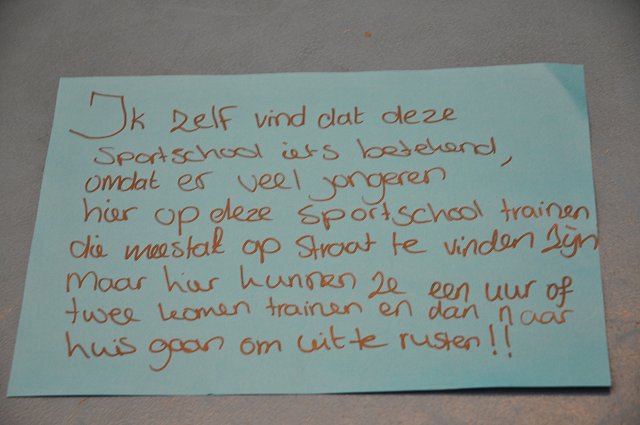 Ik zelf vind dat deze
sportschool iets betekend,
omdat er veel jongeren
hier op deze sportschool trainen
die meestal op straat te vinden zijn
maar hier kunnen ze een uur of
twee komen trainen en dan naar
huis gaan om uit te rusten!!